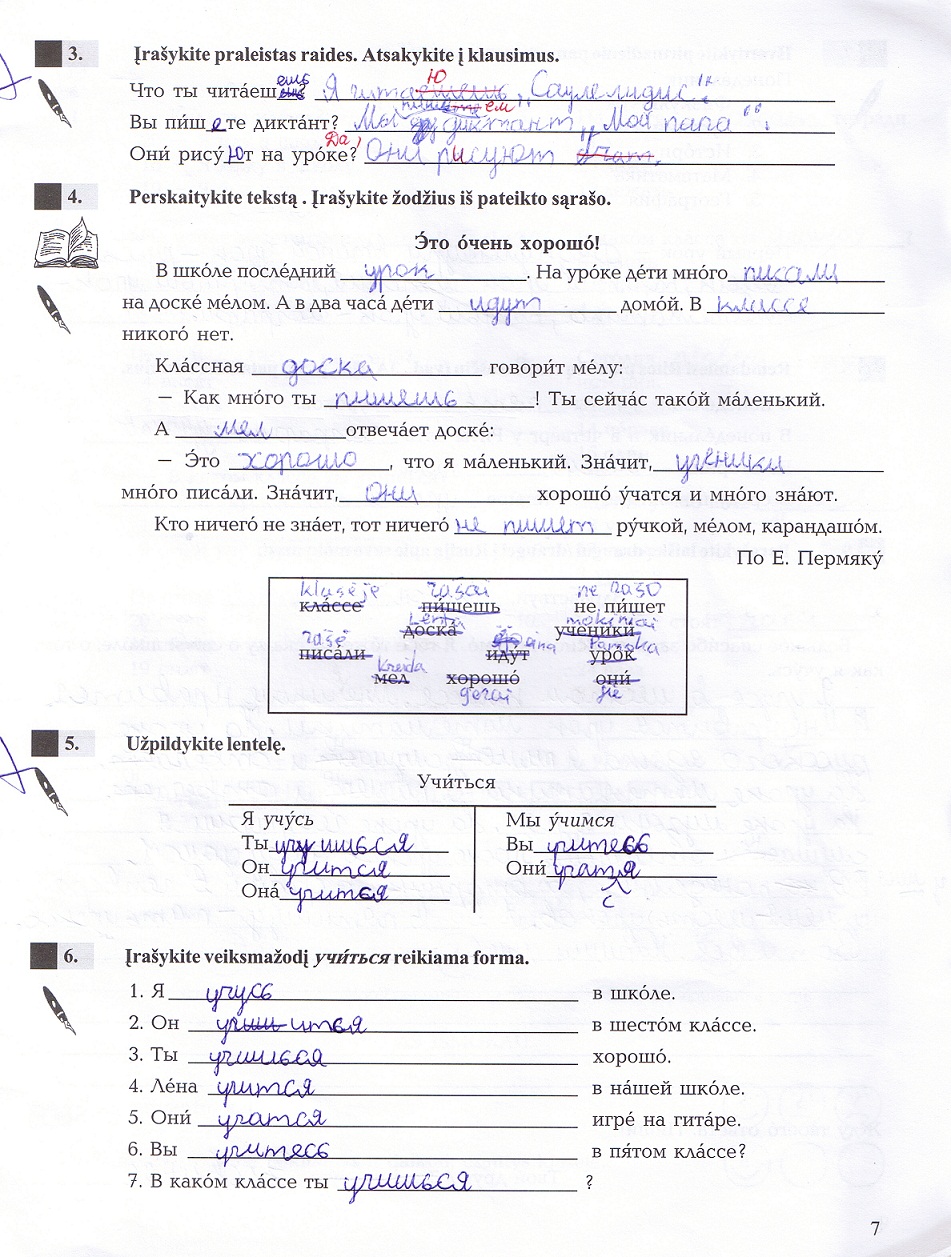 3. Įrašykite praleistas raides. Atsakykite į klausimus.
ешь
Что ты чита́еш ? Я читаю „Саулелидис".
Вы пи́ш е те дикта́нт? Мы пишем диктант „Мой папа".
Они́ рису́ ют на уро́ке? Да, Они рисуют
4. Perskaitykite tekstą . Įrašykite žodžius iš pateikto sąrašo.
Э́то о́чень хорошо́!
В шко́ле после́дний урок . На уро́ке де́ти мно́го писали
на доске́ ме́лом. А в два часа́ де́ти идут домо́й. В классе
никого́ нет.
Кла́ссная доска говори́т ме́лу:
— Как мно́го ты пишешь ! Ты сейча́с тако́й ма́ленький.
А мел отвеча́ет доске́:
— Э́то хорошо , что я ма́ленький. Зна́чит, ученики
мно́го писа́ли. Зна́чит, они хорошо́ у́чатся и мно́го зна́ют.
Кто ничего́ не зна́ет, тот ничего́ не пишет ру́чкой, ме́лом, карандашо́м.
По Е. Пермяку́
klasėje rašai ne rašo
кла́ссе пи́шешь не пи́шет
Lenta mokiniai
доска́ ученики́
rašė eina pamoka
писа́ли иду́т уро́к
kreida
мел хорошо́ они́
gerai jie
5. Užpildykite lentelę.
Учи́ться
Я учу́сь Мы у́чимся
Ты учишься Вы учитесь
Он учится Они́ учатся
Она́ учится
6. Įrašykite veiksmažodį учи́ться reikiama forma.
1. Я учусь в шко́ле.
2. Он учится в шесто́м кла́ссе.
3. Ты учишься хорошо́.
4. Ле́на учится в на́шей шко́ле.
5. Они́ учатся игре́ на гита́ре.
6. Вы учитесь в пя́том кла́ссе?
7. В како́м кла́ссе ты учишься ?
7